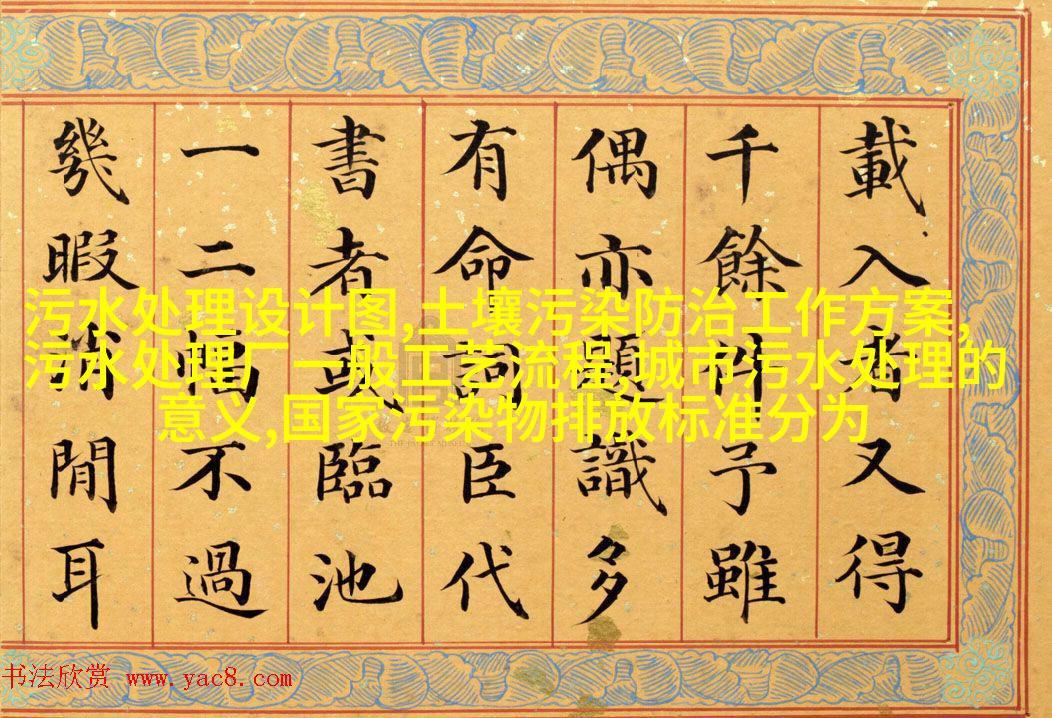 載入者又得
千餘件予雖
偶亦題識多
有命詞臣代
書者或臨池
一二幅不過
幾暇消閒耳
污水处理设计图,土壤污染防治工作方案,
污水处理厂一般工艺流程,城市污水处理的
意义,国家污染物排放标准分为
书法欣赏 www.yac8.com